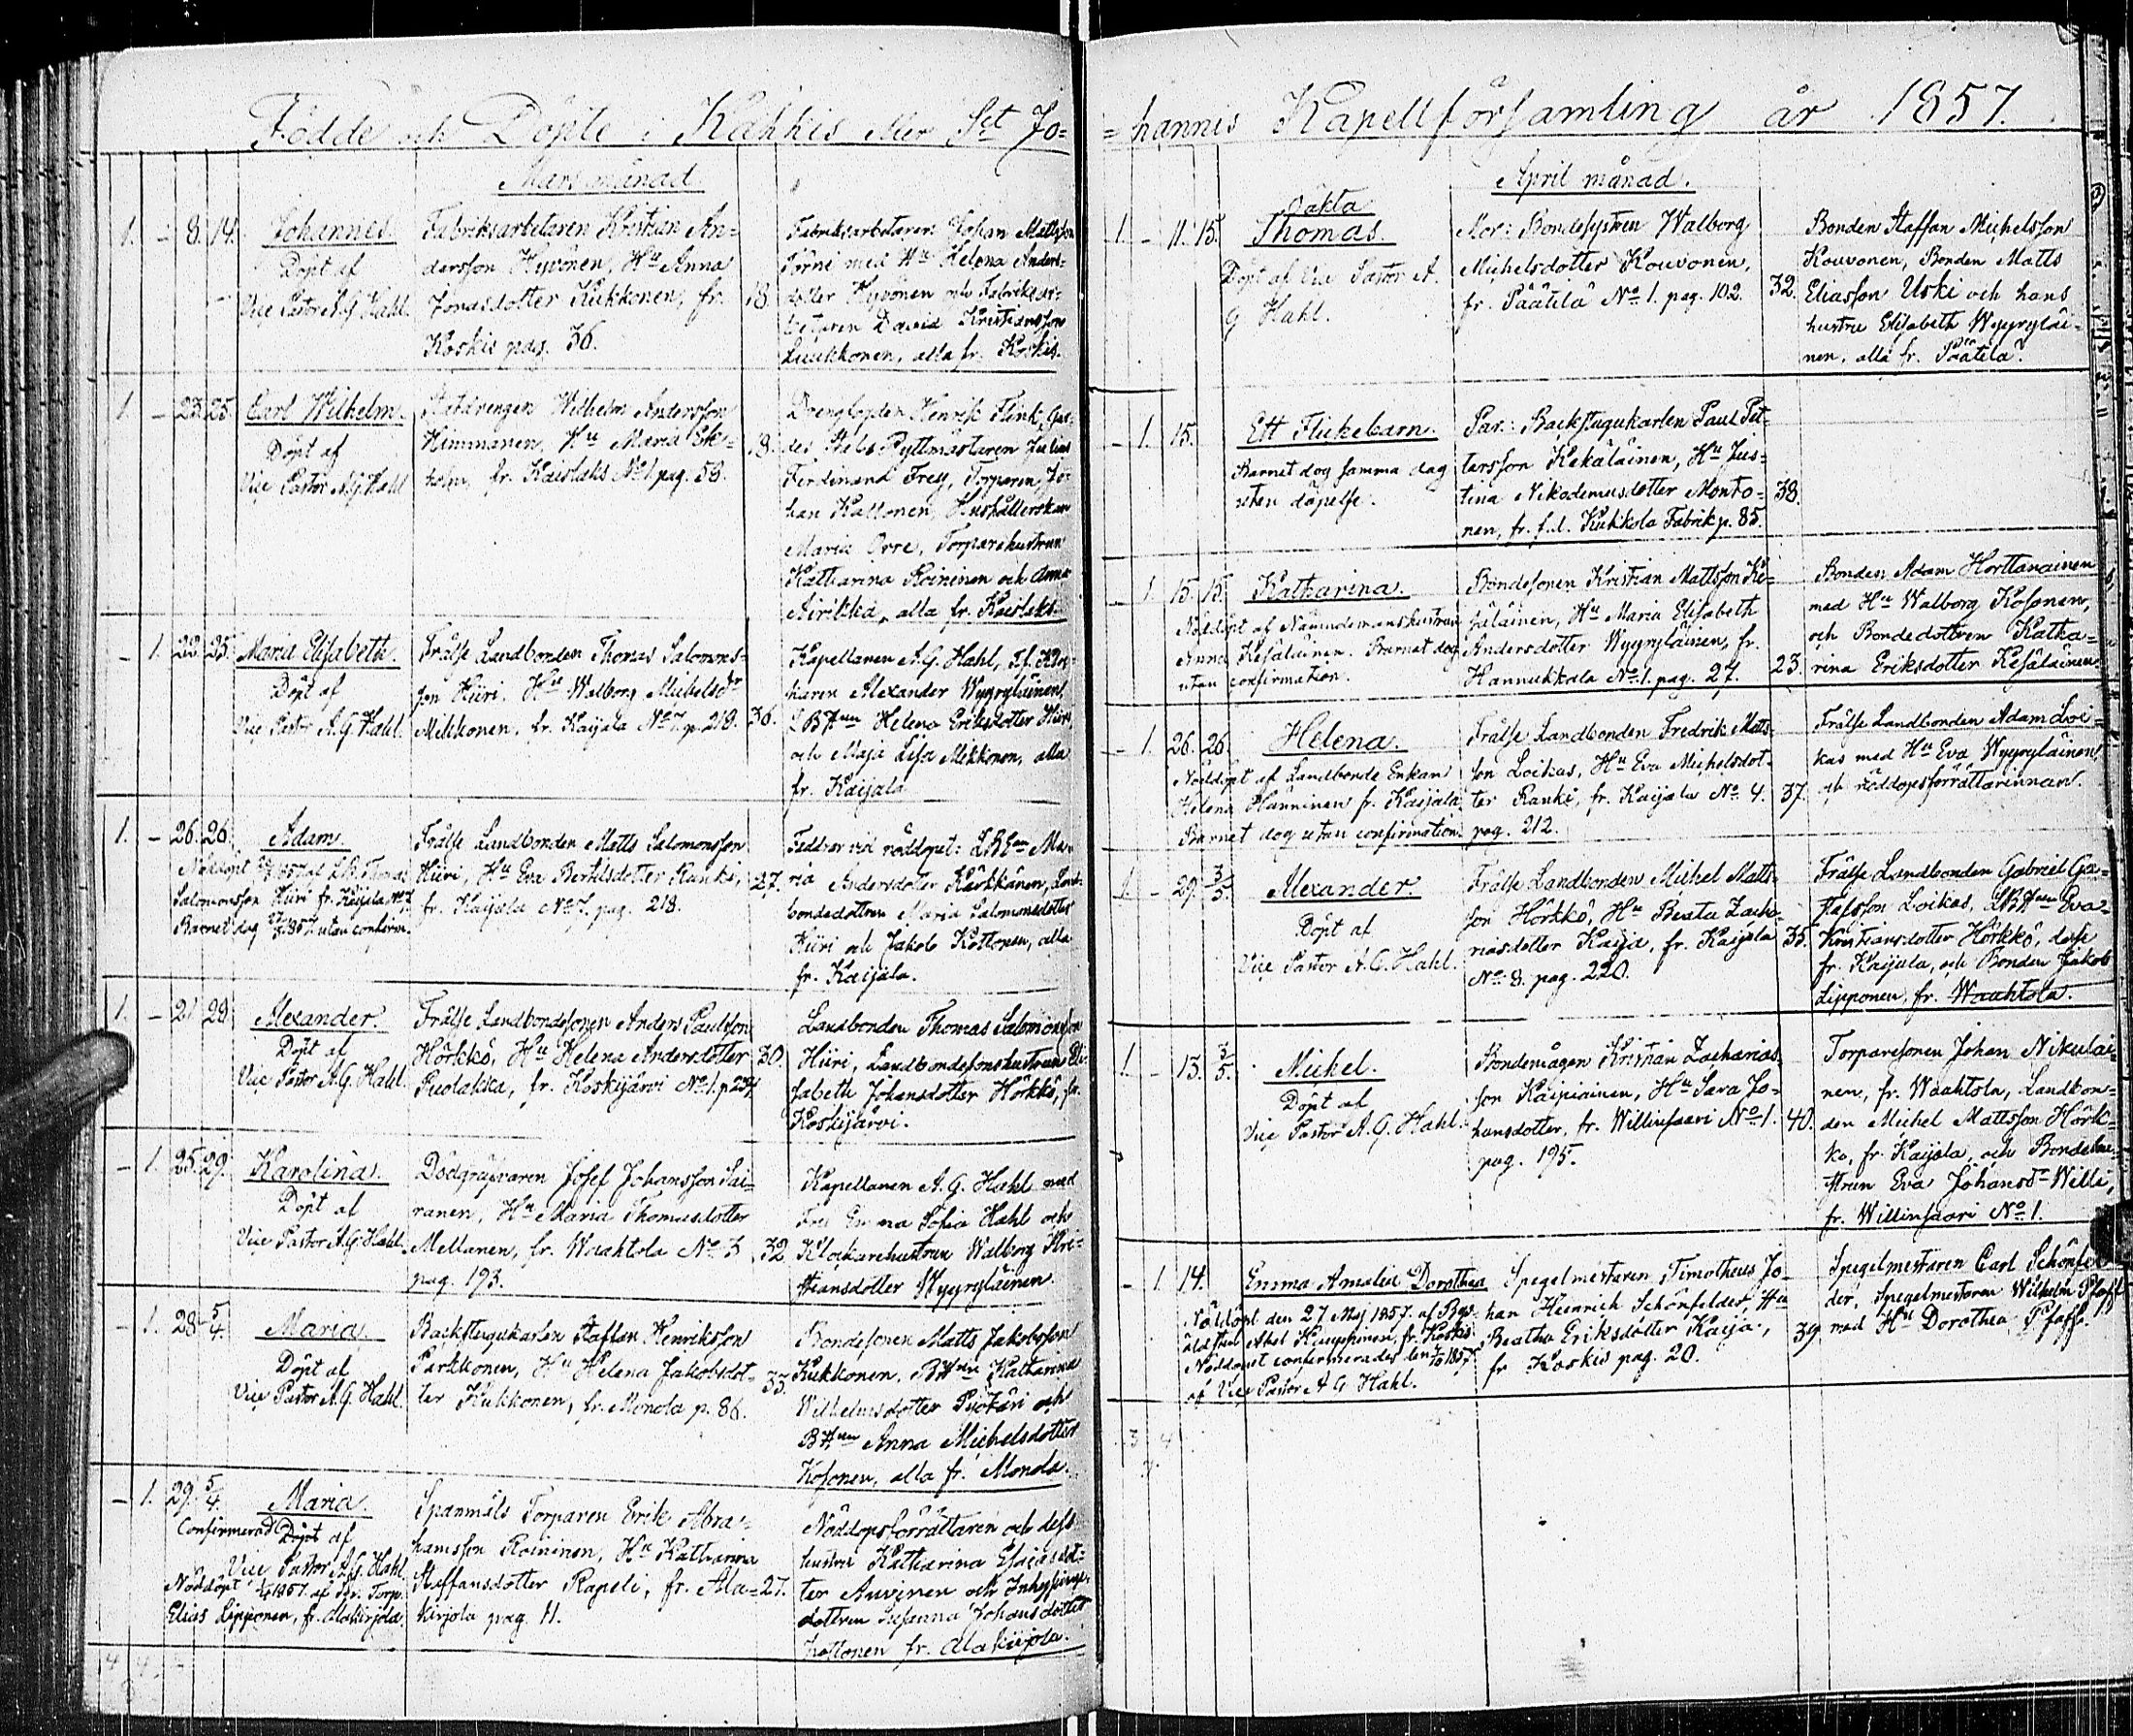 Födde och Döpte i Kakkis eller Sct Jo=
Mars månad
1. - 8. 14. Johannes.
Döpt af
Vice Pastor A G Hahl.
Fabriksarbetaren Kristian An=
dersson Hyvönen, Hu Anna
Jonasdotter Kukkonen, fr. 18
Koskis pag. 36.
Fabriksarbetaren Johan Mattsson
Törni med Hu Helena Anders=
dotter Hyvönen och Fabriksar=
betaren David Kristiansson
Luukkonen, alla fr. Koskis.
1. - 23. 25. Carl Wilhelm.
Döpt af
Vice Pastor A G Hahl
Statdrengen Wilhelm Andersson
Himmanen, Hu Maria Ek=
holm, fr. Kaislaks No 1 pag. 58.
Henrik Flink,
Ryttmästaren Julius
Ferdinand Frey, Torparen Jo=
han Kattonen, Hushållerskan
Maria Orre, Torparehustrun
Katharina Roininen och Anna
Airikka, alla fr. Kaislaks.
- 1. 23. 25. Maria Elisabeth.
Döpt af
Vice Pastor A. G. Hahl.
Frälse Landbonden Thomas Salomons=
son Hiiri. Hu Walborg Michelsdr
Mikkonen, fr. Kaijala No 7. p. 218. 36.
Kapellanen A. G. Hahl, Tf. Kloc=
karen Alexander Wyyryläinen,
Helena Eriksdotter Hiiri,
och Maja Lisa Mikkonen, alla
fr. Kaijala
1. - 26. 26. Adam
Salomonsson Hiiri fr. Kaijala No 7
Barnet dog utan confirm.
Frälse Landbonden Matts Salomonsson
Hiiri, Hu Eva Bertilsdotter Ranki, 27.
fr. Kaijala No 7. pag. 218.
Faddrar vid nöddopet: Ma=
ria Andersdotter Kärkkänen, Land=
bondedottren Maria Salomonsdotter
Hiiri och Jakob Kottonen, alla
fr. Kaijala.
1. - 21 29 Alexander.
Döpt af
Vice Pastor A. G. Hahl.
Frälse Landbondesonen Anders Paulsson
Hörkkö, Hu Helena Andersdotter 30.
Puolakka, fr. Koskijärvi No 1. p. 234
Landbonden Thomas Salomonsson
Hiiri, Landbondesonshustrun Eli=
sabeth Johansdotter Hörkkö, fr.
Koskijärvi.
- 1. 25. 29. Karolina.
Döpt af
Vice Pastor A. G. Hahl.
Dödgräfvaren Josef Johansson Sai=
ranen, Hu Maria Thomasdotter
Mellanen, fr. Waahtola No 3 32
pag. 193.
Kapellanen A. G. Hahl med
Fru Emma Sofia Hahl och
Klockarehustrun Walborg Kri=
stiansdotter Wyyryläinen.
- 1. 28 5/4. Maria.
Döpt af
Vice Pastor A. G. Hahl.
Backstugukarlen Staffan Henriksson
Parkkonen, Hu Helena Jakobsdot= 33.
ter Kukkonen, fr. Monola p. 86.
Bondesonen Matts Jakobsson
Kukkonen, Katharina
Wilhelmsdotter Puskäri och
Anna Michelsdotter
Kosonen, alla fr. Monola.
- 1. 29. 5/4. Maria.
Confirmerad Döpt af
Vice Pastor A. G. Hahl.
Nöddöpt 1857. af Torp.
Elias Lipponen, fr. Alakirjola.
Spanmåls Torparen Erik Abra=
hamsson Roininen, Hu Katharina
Staffansdotter Rapeli, fr. Ala= 27.
kirjola pag. 11.
Nöddopsförrättaren och dess
hustru Katharina Esaiasdot=
ter Auvinen och Inhysings=
dottren Susanna Johansdotter
fr. Alakirjola.
=hannis Kapellförsamling år 1857.
April månad.
Oäkta
1. - 11. 15. Thomas.
Döpt af Vice Pastor A.
G Hahl.
Mor: Bondesystren Walborg
Michelsdotter Kouvonen,
fr. Päätilä No 1. pag. 102. 32.
Bonden Staffan Michelsson
Kouvonen, Bonden Matts
Eliasson Uski och hans
hustru Elisabeth Wyyryläi=
nen, alla fr. Päätilä.
- 1. 15. Ett Flickebarn.
Barnet dog samma dag
utan döpelse.
Par: Backstugukarlen Paul Pet=
tersson Kekäläinen, Hu Jus=
tina Nikodemusdotter Monto= 38.
nen, fr. f.d. Kukkola Fabrik p. 85.
- 1. 15. 15. Katharina.
Nöddöpt af Nämndemanshustrun
Anna Kesäläinen. Barnet dog
utan confirmation.
Bondesonen Kristian Mattsson Ke=
säläinen, Hu Maria Elisabeth
Andersdotter Wyyryläinen, fr.
Hannukkala No 1. pag. 27. 23.
Bonden Adam Horttanainen
med Hu Walborg Kosonen,
och Bondedottren Katha=
rina Eriksdotter Kesäläinen
- 1. 26. 26. Helena.
Nöddöpt af Landbonde Enkan
Helena Hänninen fr. Kaijala
Barnet dog utan confirmation.
Frälse Landbonden Fredrik Matts
son Loikas, Hu Eva Michelsdot=
ter Ranki, fr. Kaijala No 4. 37.
pag. 212.
Frälse Landbonden Adam Loi=
kas med Hu Eva Wyyryläinen,
och nöddopsförrättarinnan.
1. - 29. 3/5. Alexander.
Döpt af
Vice Pastor A. G. Hahl.
Frälse Landbonden Michel Matts=
son Hörkkö, Hu Beata Zacha=
riasdotter Kaija, fr. Kaijala 35.
No 8. pag. 220.
Frälse Landbonden Gabriel Gu=
stafsson Loikas, Eva
Kristiansdotter Hörkkö, desse
fr. Kaijala, och Bonden Jakob
Lipponen, fr. Waahtola.
1. - 13. 3/5. Michel.
Döpt af
Vice Pastor A. G. Hahl.
Bondemågen Kristian Zacharias
son Kaipiainen, Hu Sara Jo=
hansdotter, fr. Willinsaari No 1. 40.
pag. 195.
Torparesonen Johan Nikulai=
nen, fr. Waahtola, Landbon=
den Michel Mattsson Hörk=
kö, fr. Kaijala, och Bondehu=
strun Eva Johansdr Willi,
fr. Willinsaari No 1.
- 1. 14. Emma Amalia Dorothea
Nöddöpt den 27 Maj 1857. af
Abel fr. Koskis.
Nöddopet confirmerades den 1857
af Vice Pastor A G Hahl.
Spegelmestaren Timotheus Jo=
han Heinrich Schönfelder, Hu
Beatha Eriksdotter Kaija, 39
fr Koskis pag. 20.
Spegelmestaren Carl Schönfel
der, Spegelmestaren Wilhelm Pfaff
med Hu Dorothea Pfaff.
3 4